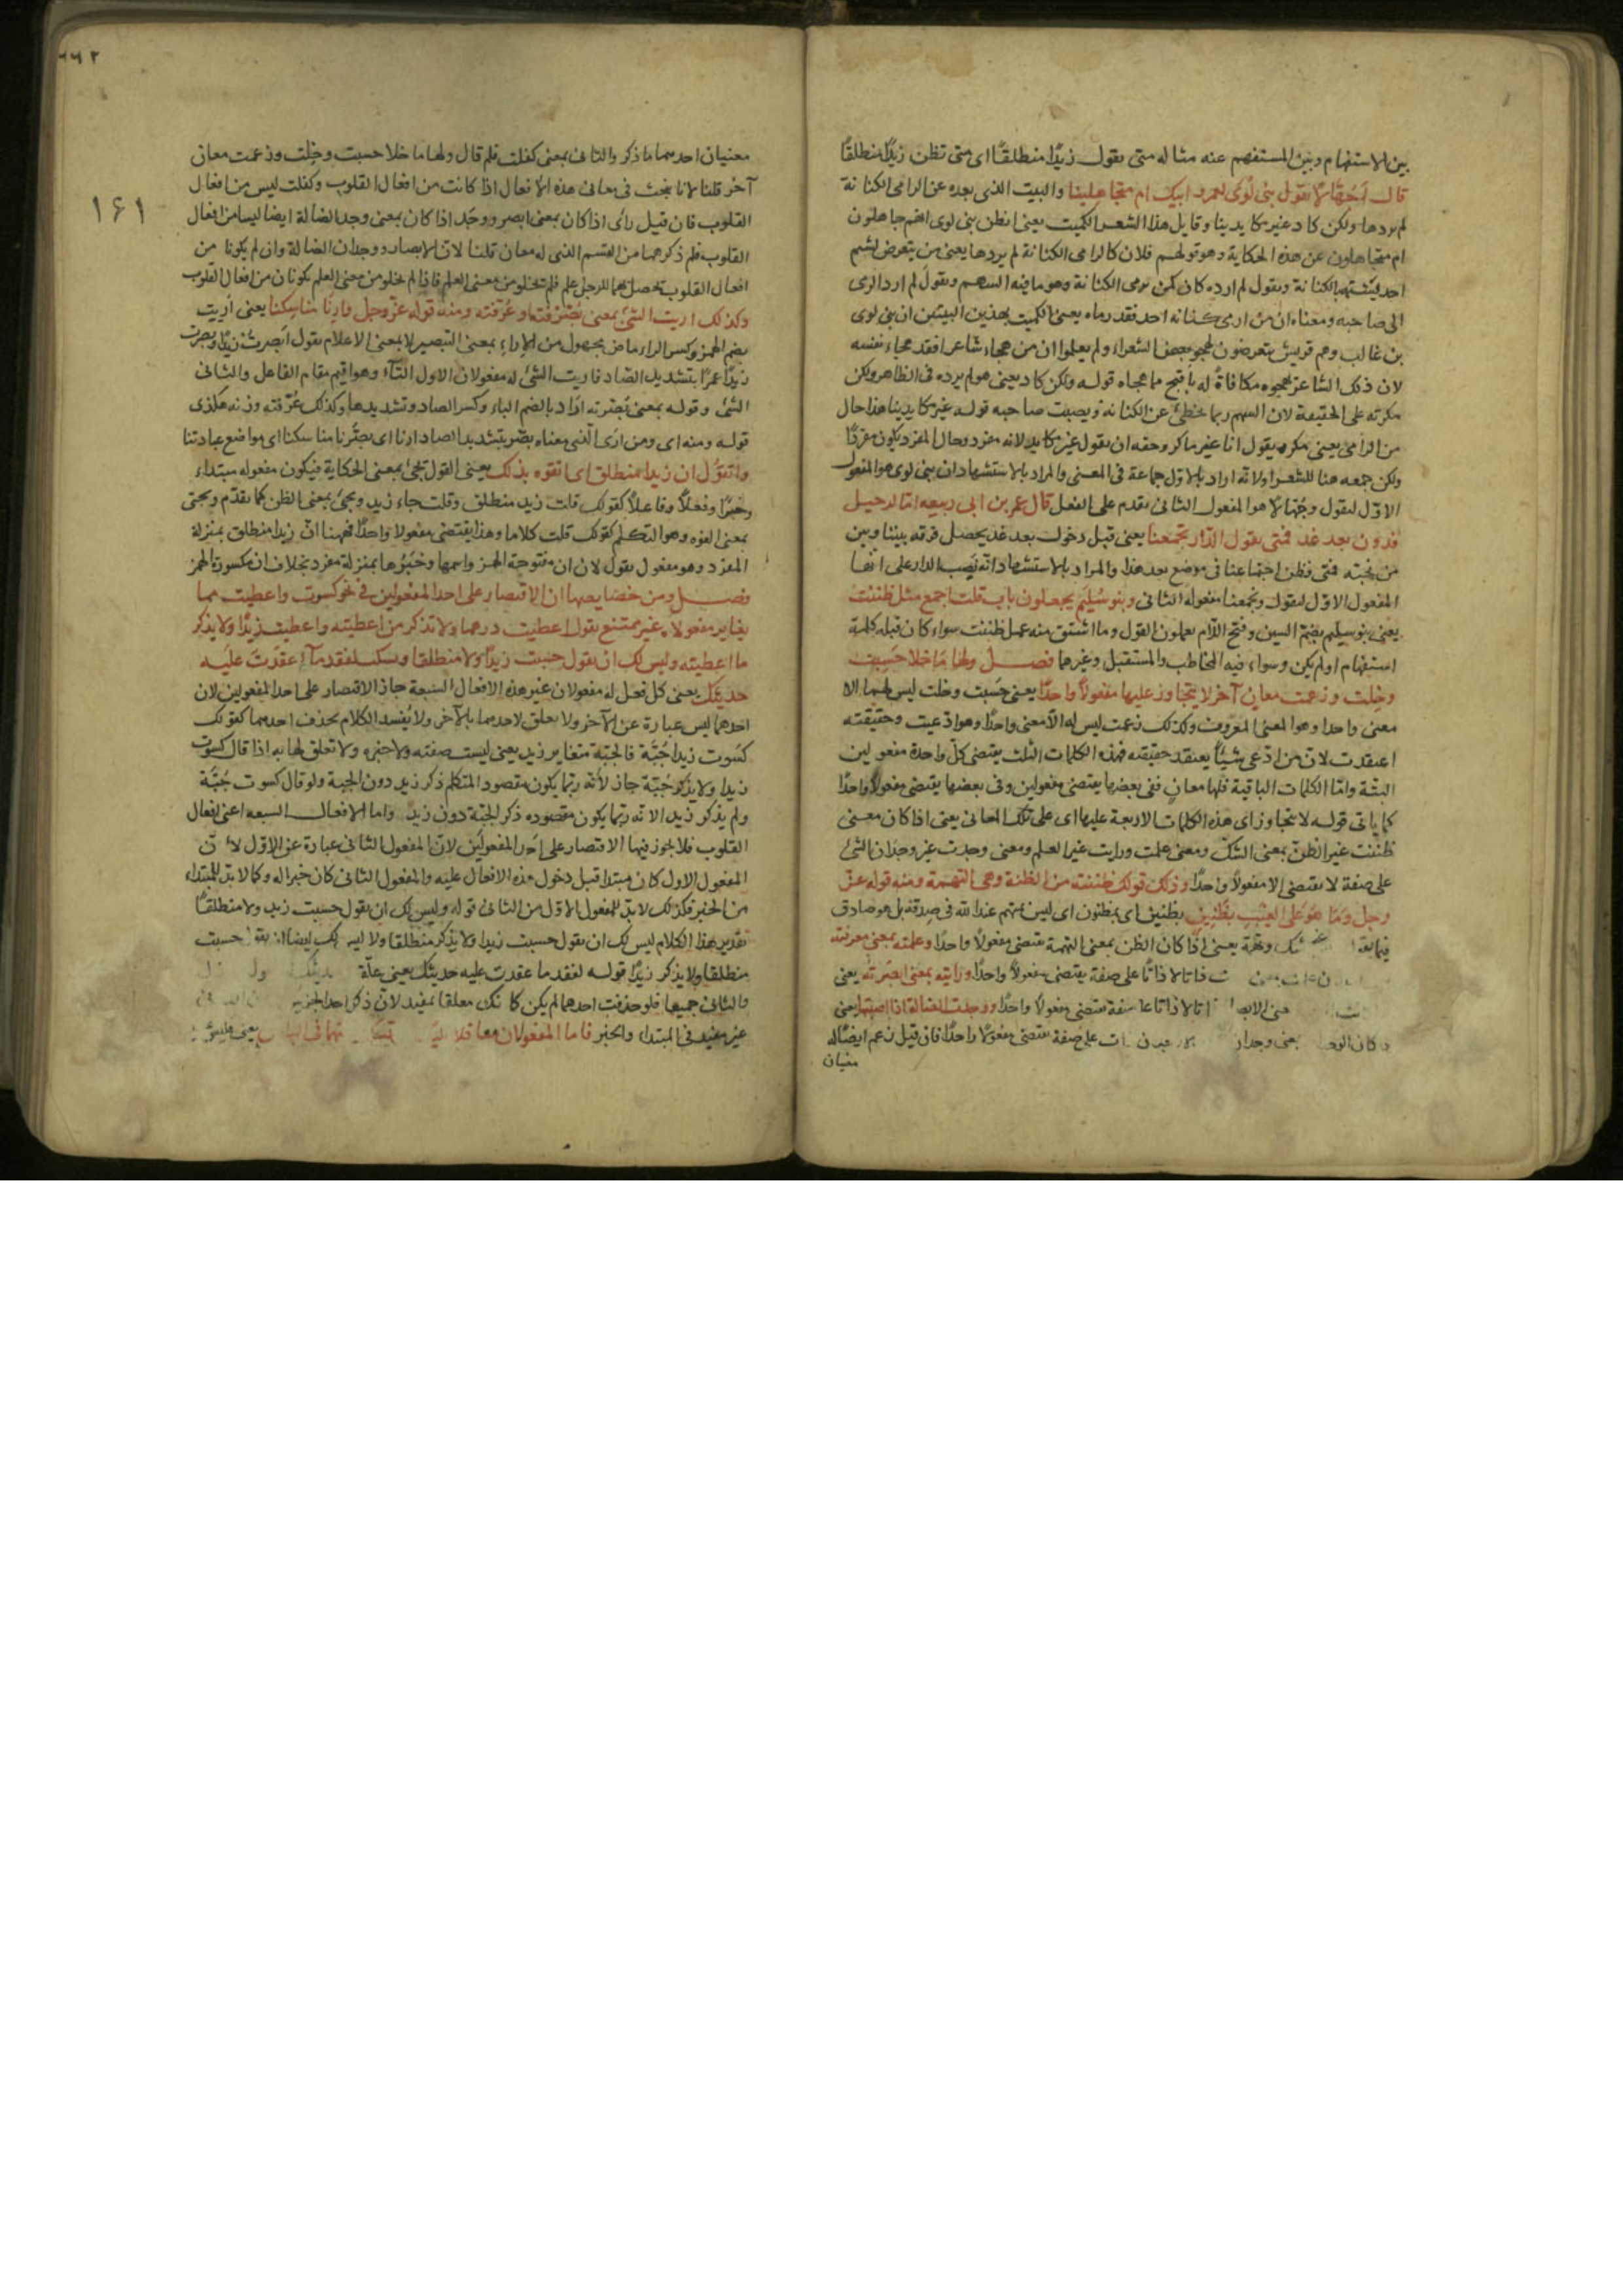 بين الاستفهام وبين المستفهم عنه مثاله متى تقول زيدًا منطلقًا اى متى تظن زيدًا منطلقًا
قال أجهّالا تقول بنى لؤى لعمر ابيك ام متجاهلينا والبيت الذى بعده عن الرامى الكنانة
لم يردها ولكن كاد غير مكايدينا وقايل هذا الشعر الكميت يعنى اتظن بنى لوى انهم جاهلون
ام متجاهلون عن هذه الحكاية وهو قولهم فلان كالرامى الكنانة لم يردها يعنى من يتعرض لشتم
احد ليشتهر بالكنانة ويقول لم ارده كان كمن يرمى الكنانة وهو ما فيه السهم ويقول لم ارد الرمى
الى صاحبه ومعناه ان من ارمى كنانه احد فقد رماه يعنى الكميت بهذين البيتين ان بنى لوى
بن غالب وهم قريش يتعرضون لهجو بعض الشعراء ولم يعلموا ان من هجاء شاعرا فقد هجاء نفسه
لان ذلك الشاعر يهجوه مكافاةً له باقبح مما هجاه قوله ولكن كاد يعنى هو لم يرده فى الظاهر ولكن
مكر به على الحقيقة لان السهم ربما يخطئ عن الكنانة ويصيب صاحبه قوله غير مكايدينا هذا حال
من الرامى يعنى مكره يقول انا غير ماكر وحقه ان يقول غير مكايد لانه مفرد وحال المفرد يكون مفردًا
ولكن جمعه هنا للشعر او لانه اراد بالاول جماعة فى المعنى والمراد بالاستشهاد ان بنى لوى هو المفعول
الاول لتقول وجُهّالا هو المفعول الثانى تقدم على الفعل قال عمر بن ابى ربيعه امّا الرحيل
فدون بعد غد فمتى تقول الدّار تجمعنا يعنى قبل دخول بعد غد يحصل فرقه بيننا وبين
من نحبّه فمتى نظن اجتماعنا فى موضع بعد هذا والمراد بالاستشهاد انه نصب الدار على انها
المفعول الاوّل لتقول وتجمعنا مفعوله الثانى وبنو سُليم يجعلون باب قلت اجمع مثل ظننت
يعنى بنو سليم بضمّ السين وفتح اللّام يعملون القول وما اشتق منه عمل ظننت سواء كان قبله كلمة
استفهام او لم يكن وسواء فيه المخاطب والمستقبل وغيرهما فصل ولها ما خلا حسبت
وخلت وزعمت معانٍ آخر لا يتجاوز عليها مفعولًا واحدًا يعنى حسبت وخلت ليس لهما الا
معنى واحدا وهو المعنى المعروف وكذلك زعمت ليس له الا معنى واحدًا وهو ادّعيت وحقيقته
اعتقدت لان من ادّعى شيئًا يعتقد حقيقته فهذه الكلمات الثلث يقتضى كلّ واحدة مفعولين
البتّة وامّا الكلمات الباقية فلها معانٍ ففى بعضها يقتضى مفعولين وفى بعضها يقتضى مفعولًا واحدًا
كما ياتى قوله لا يتجاوز اى هذه الكلمات الاربعة عليها اى على تلك المعانى يعنى اذا كان معنى
ظننت غير الظنّ بمعنى الشكّ ومعنى علمت ورايت غير العلم ومعنى وجدت غير وجدان الشئ
على صفة لا يقتضى الا مفعولًا واحدًا وذلك قولك ظننته من الظنّة وهى التهمة ومنه قوله عزّ
وجل وما هو على الغيب بظنين بظنين اى بمظنون اى ليس بمتهم عند الله فى صدقه بل هو صادق
فيما وتهمة يعنى اذا كان الظن بمعنى التهمة يقتضى مفعولًا واحدًا وعلمته بمعنى عرفته
ذاتا لا ذاتًا على صفة يقتضى مفعولًا واحدًا ورايته بمعنى ابصرته يعنى
ذاتا لا ذاتا على صفة يقتضى مفعولًا واحدًا ووجدت الضالة اذا اصبتها يعنى
على صفة يقتضى مفعولًا واحدًا فان قيل زعم ايضًا له
معنيان
٢٦٢
١٦١
معنيان احدهما ما ذكر والثانى بمعنى كفلت فلم قال ولها ما خلا حسبت وخلت وزعمت معان
آخر قلنا لانا نبحث فى معانى هذه الافعال اذا كانت من افعال القلوب وكفلت ليس من افعال
القلوب فان قيل رأى اذا كان بمعنى ابصر ووجد اذا كان بمعنى وجد الضالة ايضا ليسا من افعال
القلوب فلم ذكرهما من القسم الذى له معان قلنا لان الابصار ووجدان الضالة وان لم يكونا من
افعال القلوب يحصل بهما للرجل علم فلم تخلو من معنى العلم فاذا لم يخلو من معنى العلم يكونان من افعال القلوب
وكذلك اريت الشئ بمعنى بُصّرته وعُرّفته ومنه قوله عزّ وجل وارنا مناسكنا يعنى اُريت
بضم الهمز وكسر الراء ماض مجهول من الاراء بمعنى التبصير لا بمعنى الاعلام يقول ابصرت زيدًا وبصّرت
زيدًا عمرًا بتشديد الصاد فاريت الشئ له مفعولان الاول التاء وهو اقيم مقام الفاعل والثانى
الشئ وقوله بمعنى بُصّرته اراد بالضم الباء وكسر الصاد وتشديدها وكذلك عُرّفته وزنه هكذى
قوله ومنه اى ومن ارى الّذى معناه بصّر بتشديد الصاد ارنا اى بصّرنا مناسكنا اى مواضع عبادتنا
واتقول ان زيدا منطلق اى اتفوه بذلك يعنى القول يجئ بمعنى الحكاية فيكون مفعوله مبتداء
وخبرًا وفعلًا وفاعلًا كقولك قلت زيد منطلق وقلت جاء زيد ويجئ بمعنى الظن كما تقدّم ويجئ
بمعنى التفوه وهو التكلم كقولك قلت كلاما وهذا يقتضى مفعولًا واحدًا فههنا انّ زيدا منطلق بمنزلة
المفرد وهو مفعول تقول لان ان مفتوحة الهمز واسمها وخبرُها بمنزلة مفرد بخلاف ان مكسورة الهمز
فصل ومن خصايصها ان الاقتصار على احد المفعولين فى نحو كسوت واعطيت مما
يغاير مفعولاه غير ممتنع يقول اعطيت درهما ولا تذكر من اعطيته واعطيت زيدًا ولا يذكر
ما اعطيته وليس لك ان يقول حسبت زيدًا ولا منطلقا وتسكت لفقد ما عقدت عليه
حديثك يعنى كل فعل له مفعولان غير هذه الافعال السبعة جاز الاقتصار على احد المفعولين لان
احدهما ليس عبارة عن الآخر ولا تعلق لاحدهما بالآخر ولا يُفسد الكلام بحذف احدهما كقولك
كسوت زيدا جُبّة فالجبّة متغاير زيد يعنى ليست صفته ولا خبره ولا تعلق لها به اذا قال كسوت
زيدا ولا يذكر جُبّة جاز لانه ربّما يكون مقصود المتكلم ذكر زيد دون الجبة ولو قال كسوت جُبّة
ولم يذكر زيد الانه ربّما يكون مقصوده ذكر الجبّة دون زيد واما الافعال السبعه اعنى افعال
القلوب فلا يجوز فيها الاقتصار على احد المفعولين لان المفعول الثانى عبارة عن الاوّل لانّ
المفعول الاول كان مبتدا قبل دخول هذه الافعال عليه والمفعول الثانى كان خبرا له وكما لا بدّ للمبتداء
من الخبر فكذلك لا بدّ للمفعول الاوّل من الثانى قوله وليس لك ان يقول حسبت زيد ولا منطلقًا
تقدير هذا الكلام ليس لك ان يقول حسبت زيدا ولا يذكر منطلقا ولا ليس لك ايضا ان يقول حسبت
منطلقا ولا يذكر زيدًا قوله لفقد ما عقدت عليه حديثك يعنى علّقت
والثانى جميعا فلو حذفت احدهما لم يكن كانك معلقا بمفيد لان ذكر احد الجزئين
غير مفيد فى المبتداء والخبر فاما المفعولان معا فلا